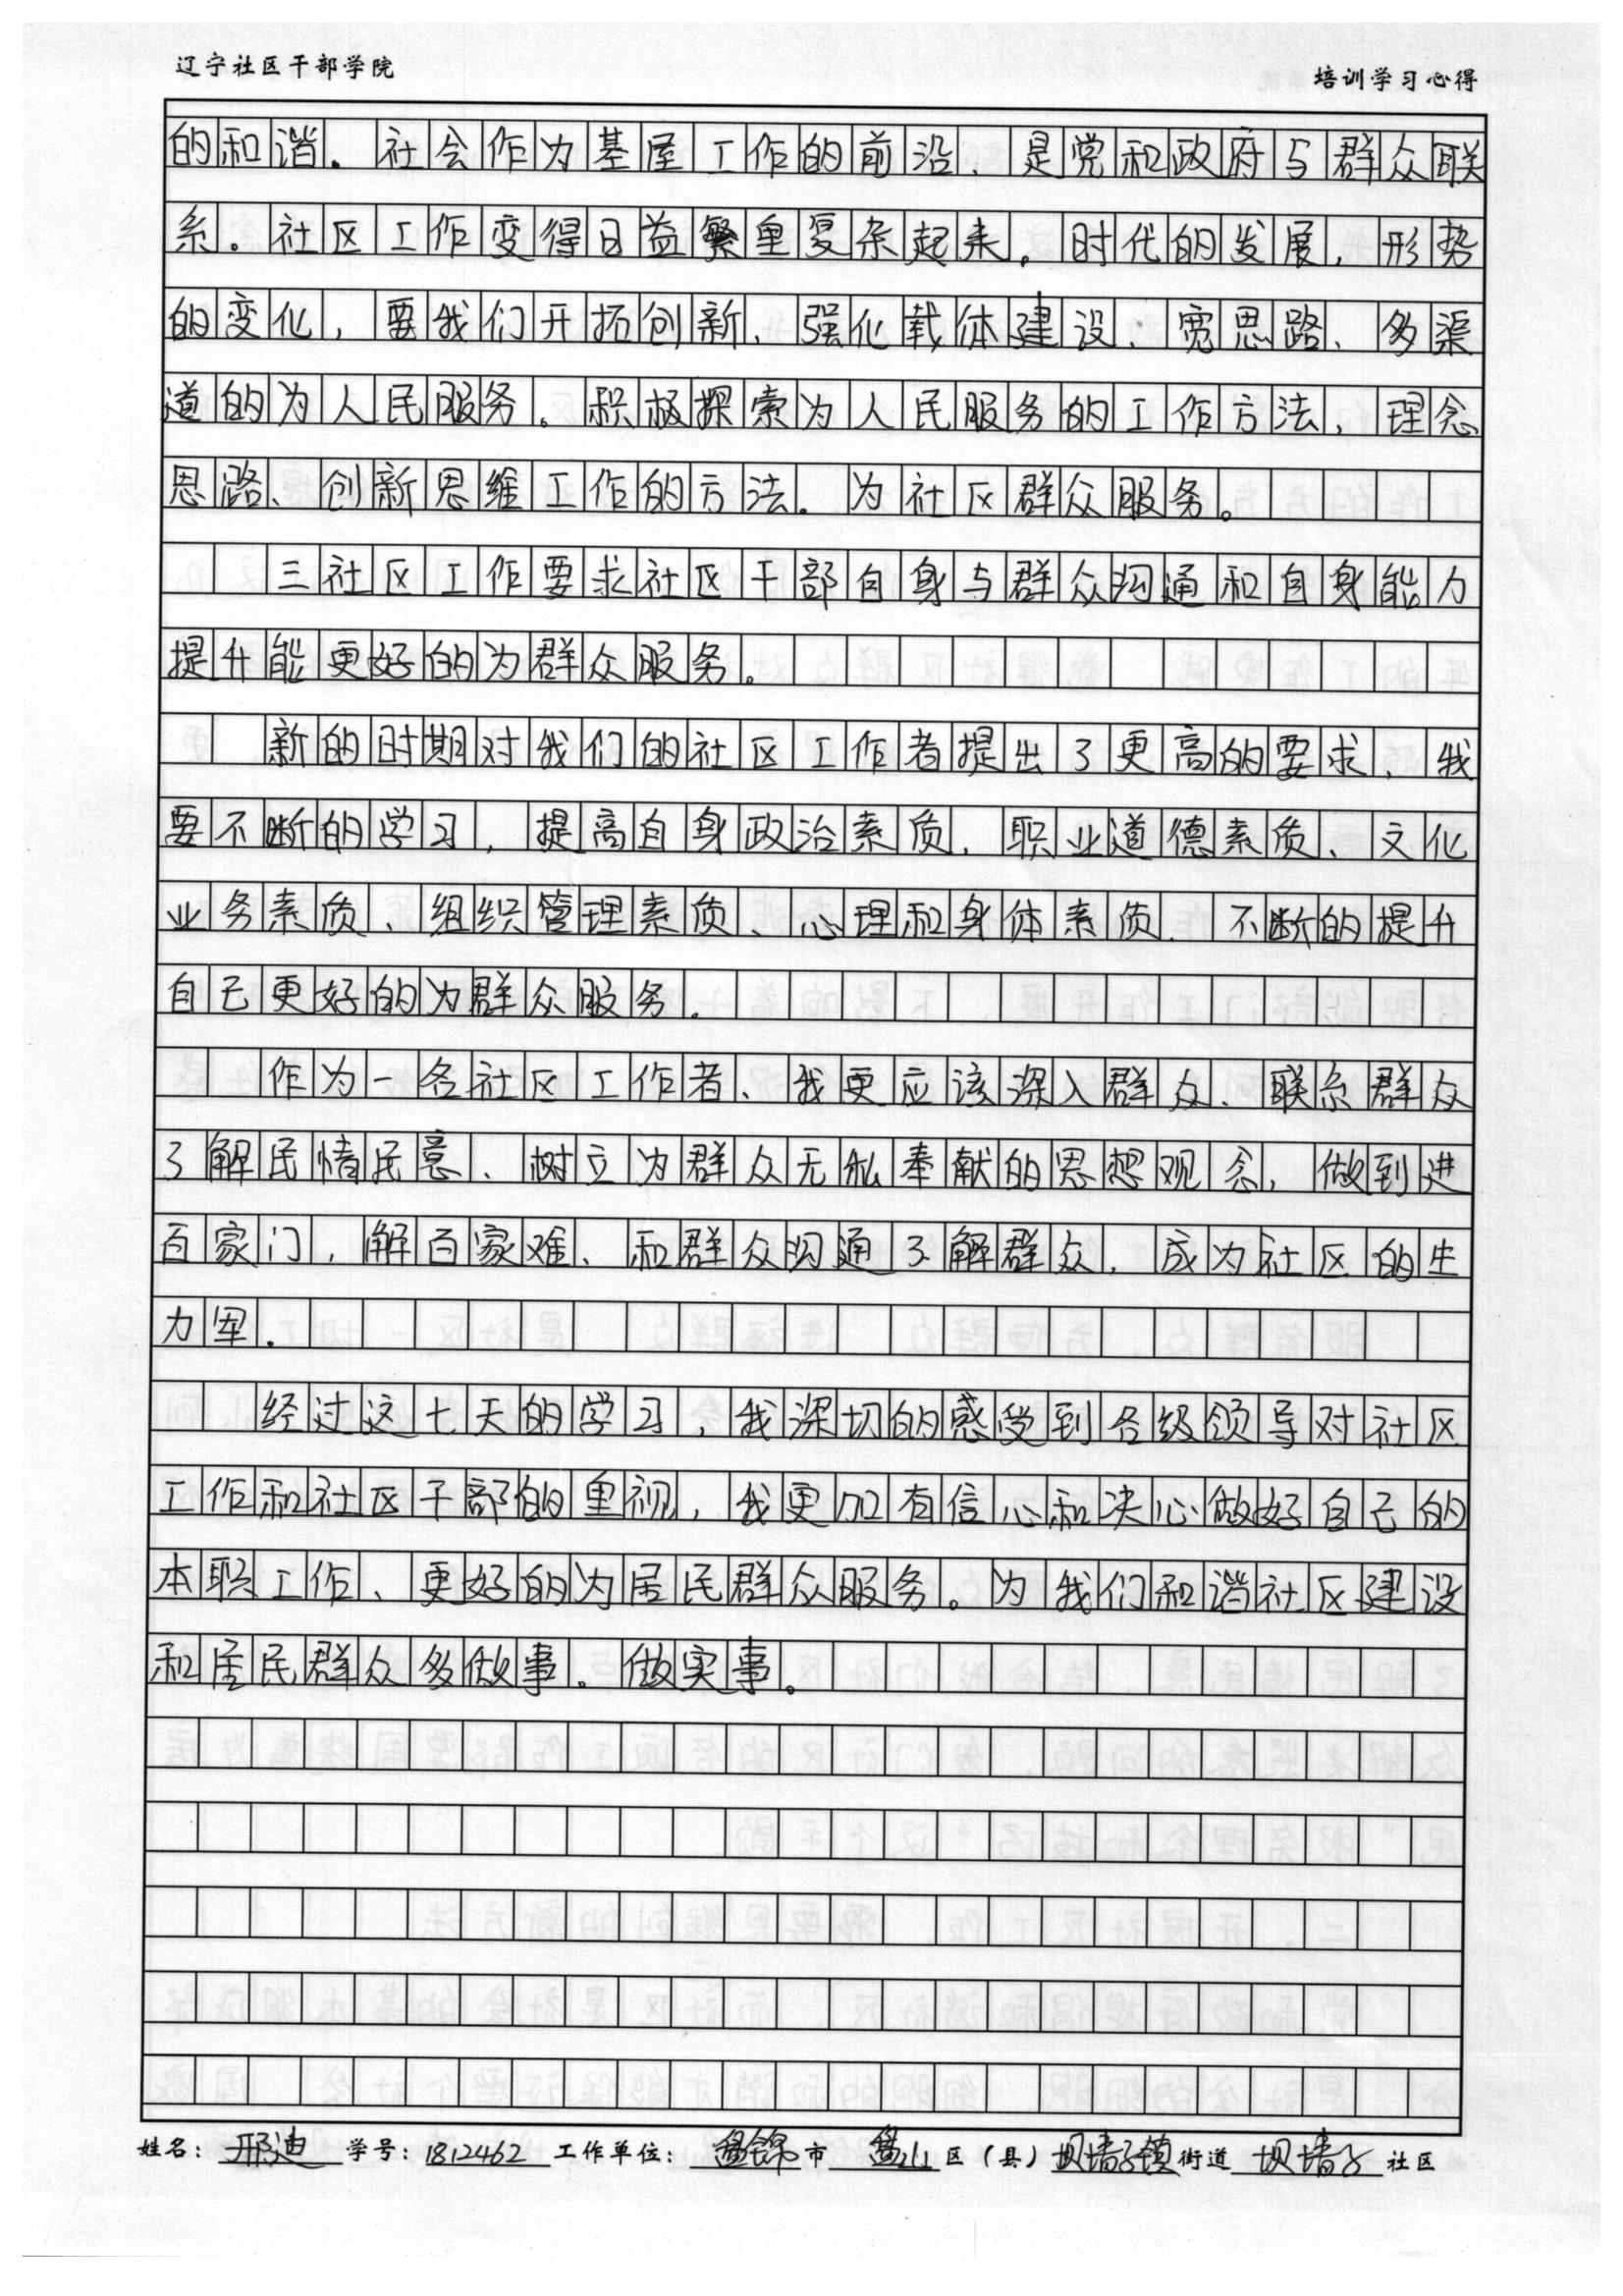 辽宁社区干部学院
培训学习心得
的和谐。社会作为基层工作的前沿、是党和政府与群众联
系。社区工作变得日益繁重复杂起来。时代的发展，形势
的变化，要我们开拓创新、强化载体建设、宽思路、多渠
道的为人民服务。积极探索为人民服务的工作方法，理念
思路、创新思维工作的方法。为社区群众服务。
三社区工作要求社区干部自身与群众沟通和自身能力
提升能更好的为群众服务。
新的时期对我们的社区工作者提出了更高的要求、我
要不断的学习，提高自身政治素质、职业道德素质、文化
业务素质、组织管理素质、心理和身体素质、不断的提升
自己更好的为群众服务。
作为一名社区工作者、我更应该深入群众、联系群众
了解民情民意、树立为群众无私奉献的思想观念，做到进
百家门，解百家难、和群众沟通了解群众，成为社区的生
力军。
经过这七天的学习，我深切的感受到各级领导对社区
工作和社区干部的重视，我更加有信心和决心做好自己的
本职工作、更好的为居民群众服务。为我们和谐社区建设
和居民群众多做事。做实事。
姓名：邢迪 学号：1812462 工作单位：盘锦市 盘山区（县）坝墙子镇街道 坝墙子社区